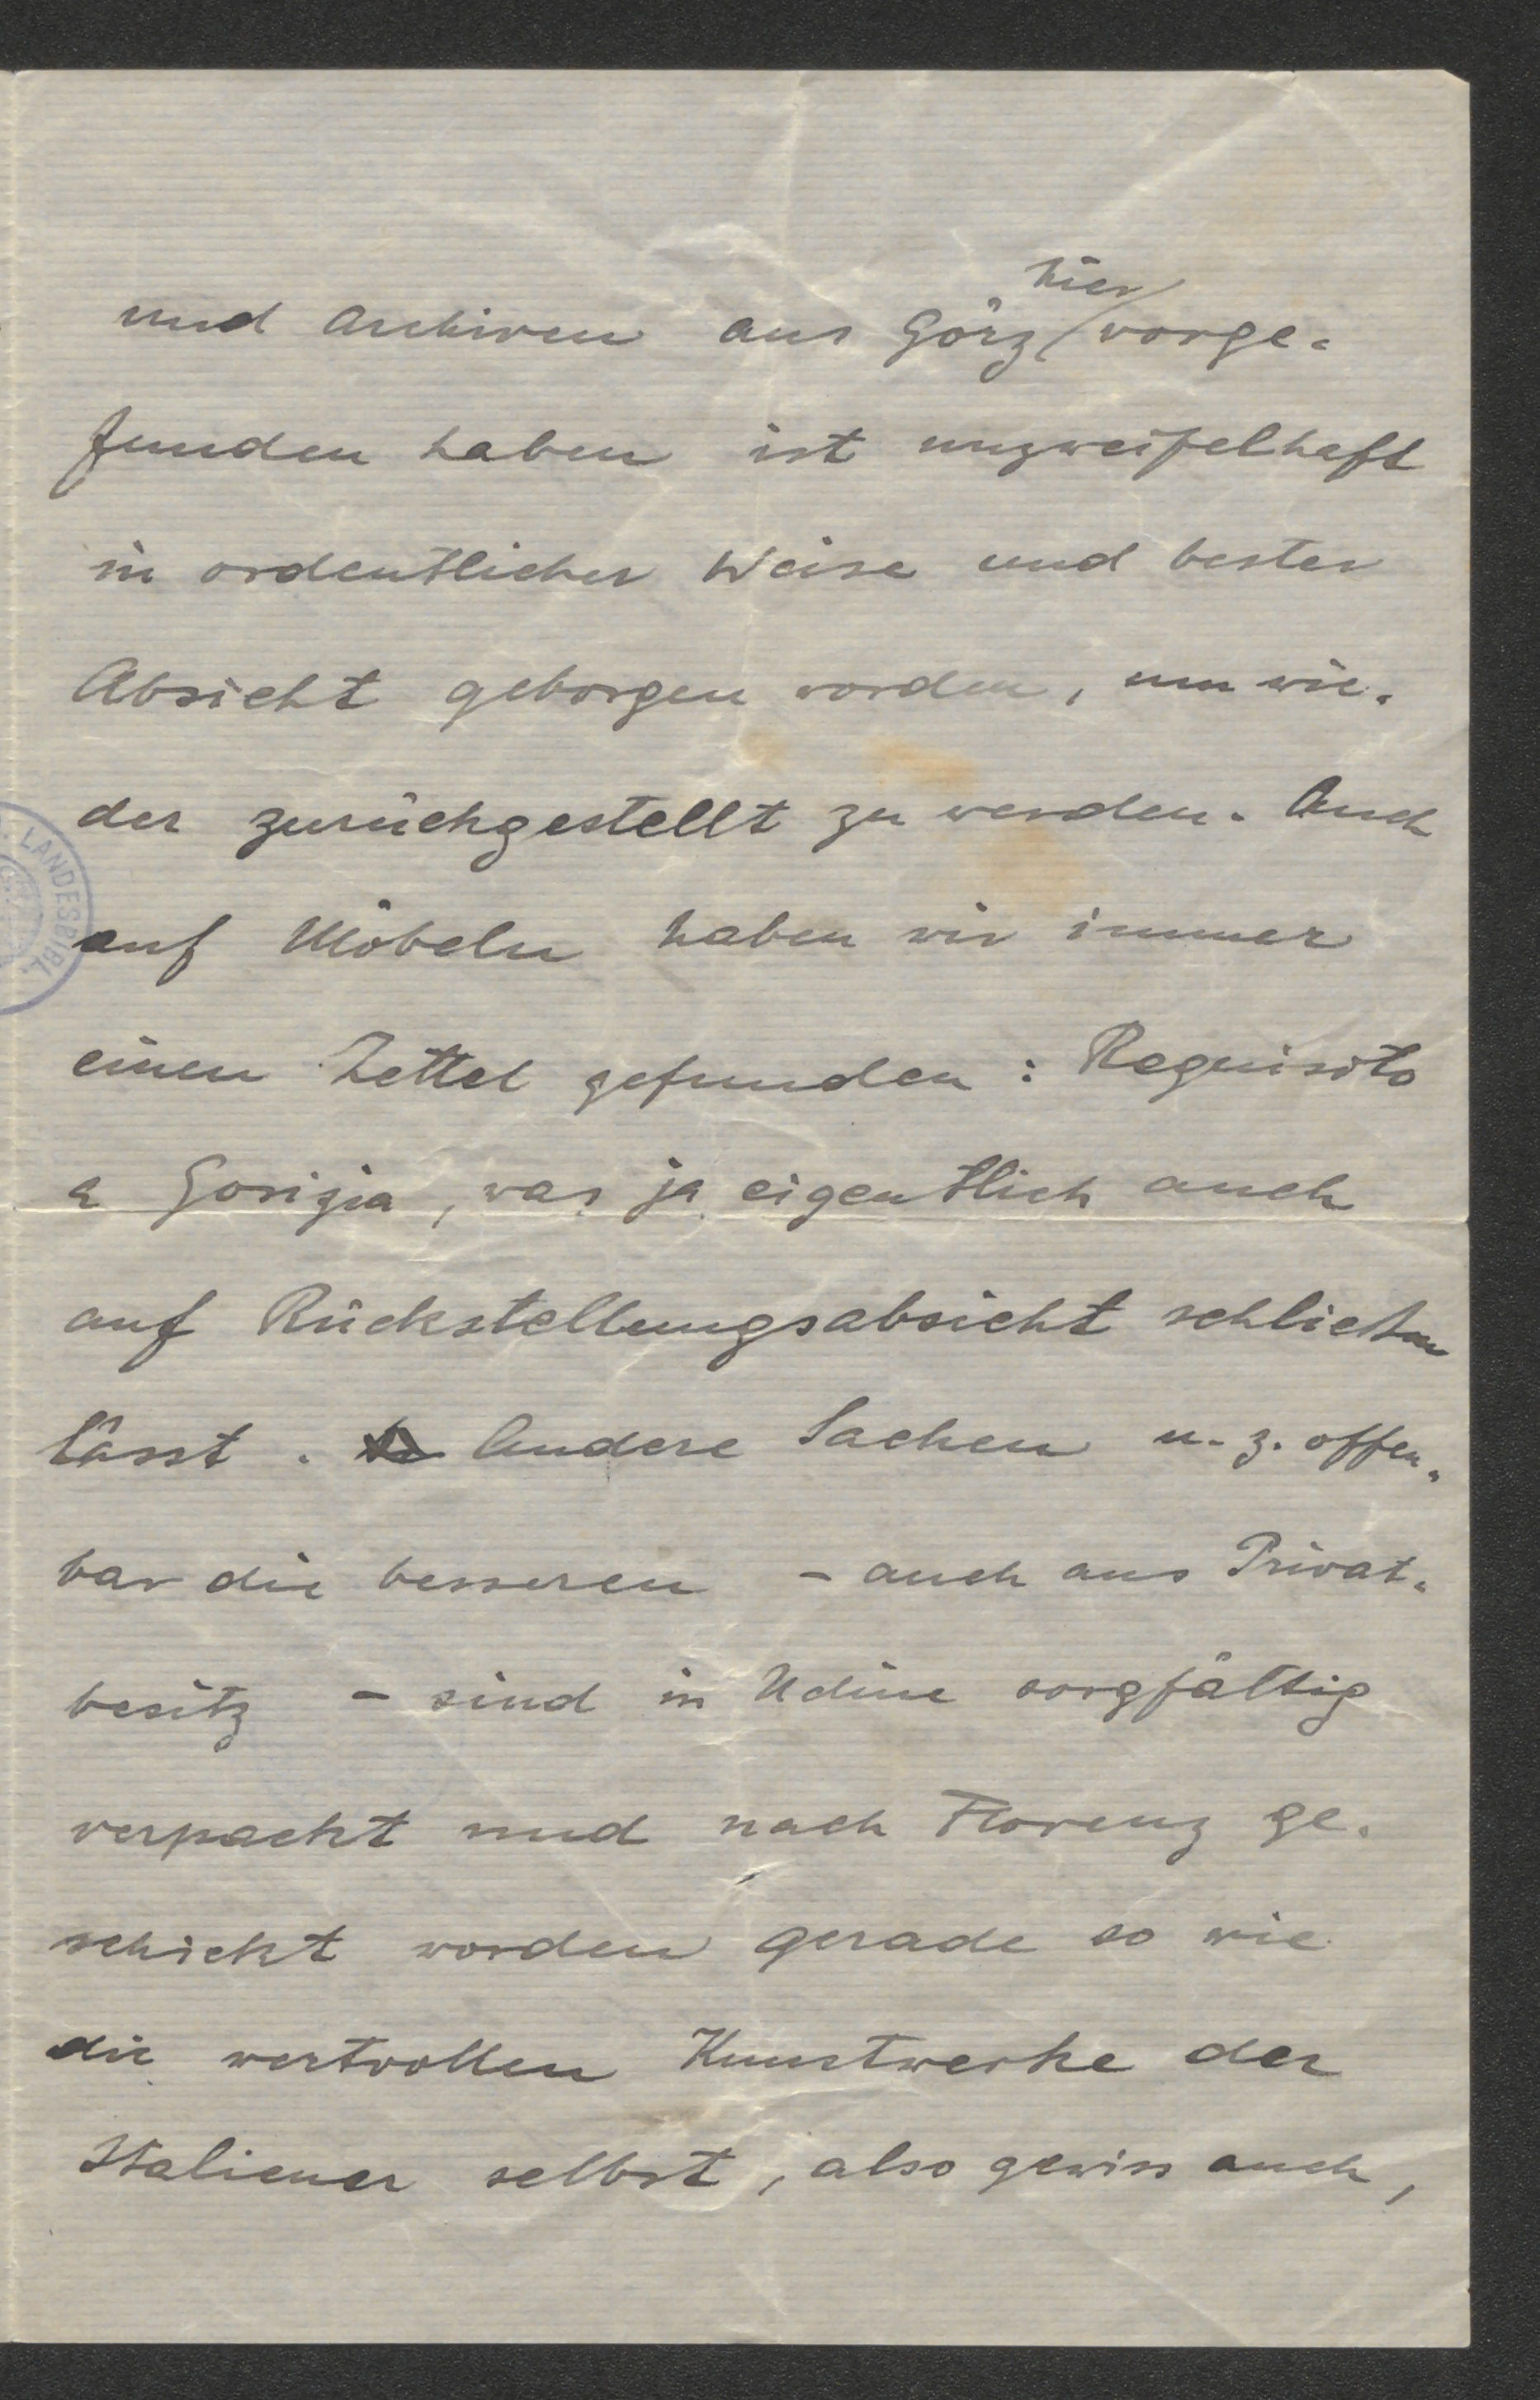 hier
und Archiven aus Görz vorge-
funden haben ist unzweifelhaft
in ordentlicher Weise und bester
Absicht geborgen worden, um wie-
der zurückgestellt zu werden. Auch
auf Möbeln haben wir immer
einen Zettel gefunden: Requisito
a Gorizia, was ja eigentlich auch
auf Rückstellungsabsicht schließen
lässt. Andere Sachen u. z. offen-
bar die besseren - auch aus Privat-
besitz - sind in Udine sorgfältig
verpackt und nach Florenz ge-
schickt worden gerade so wie
die wertvollen Kunstwerke der
Italiener selbst, also gewiss auch,
LANDESBIBL.